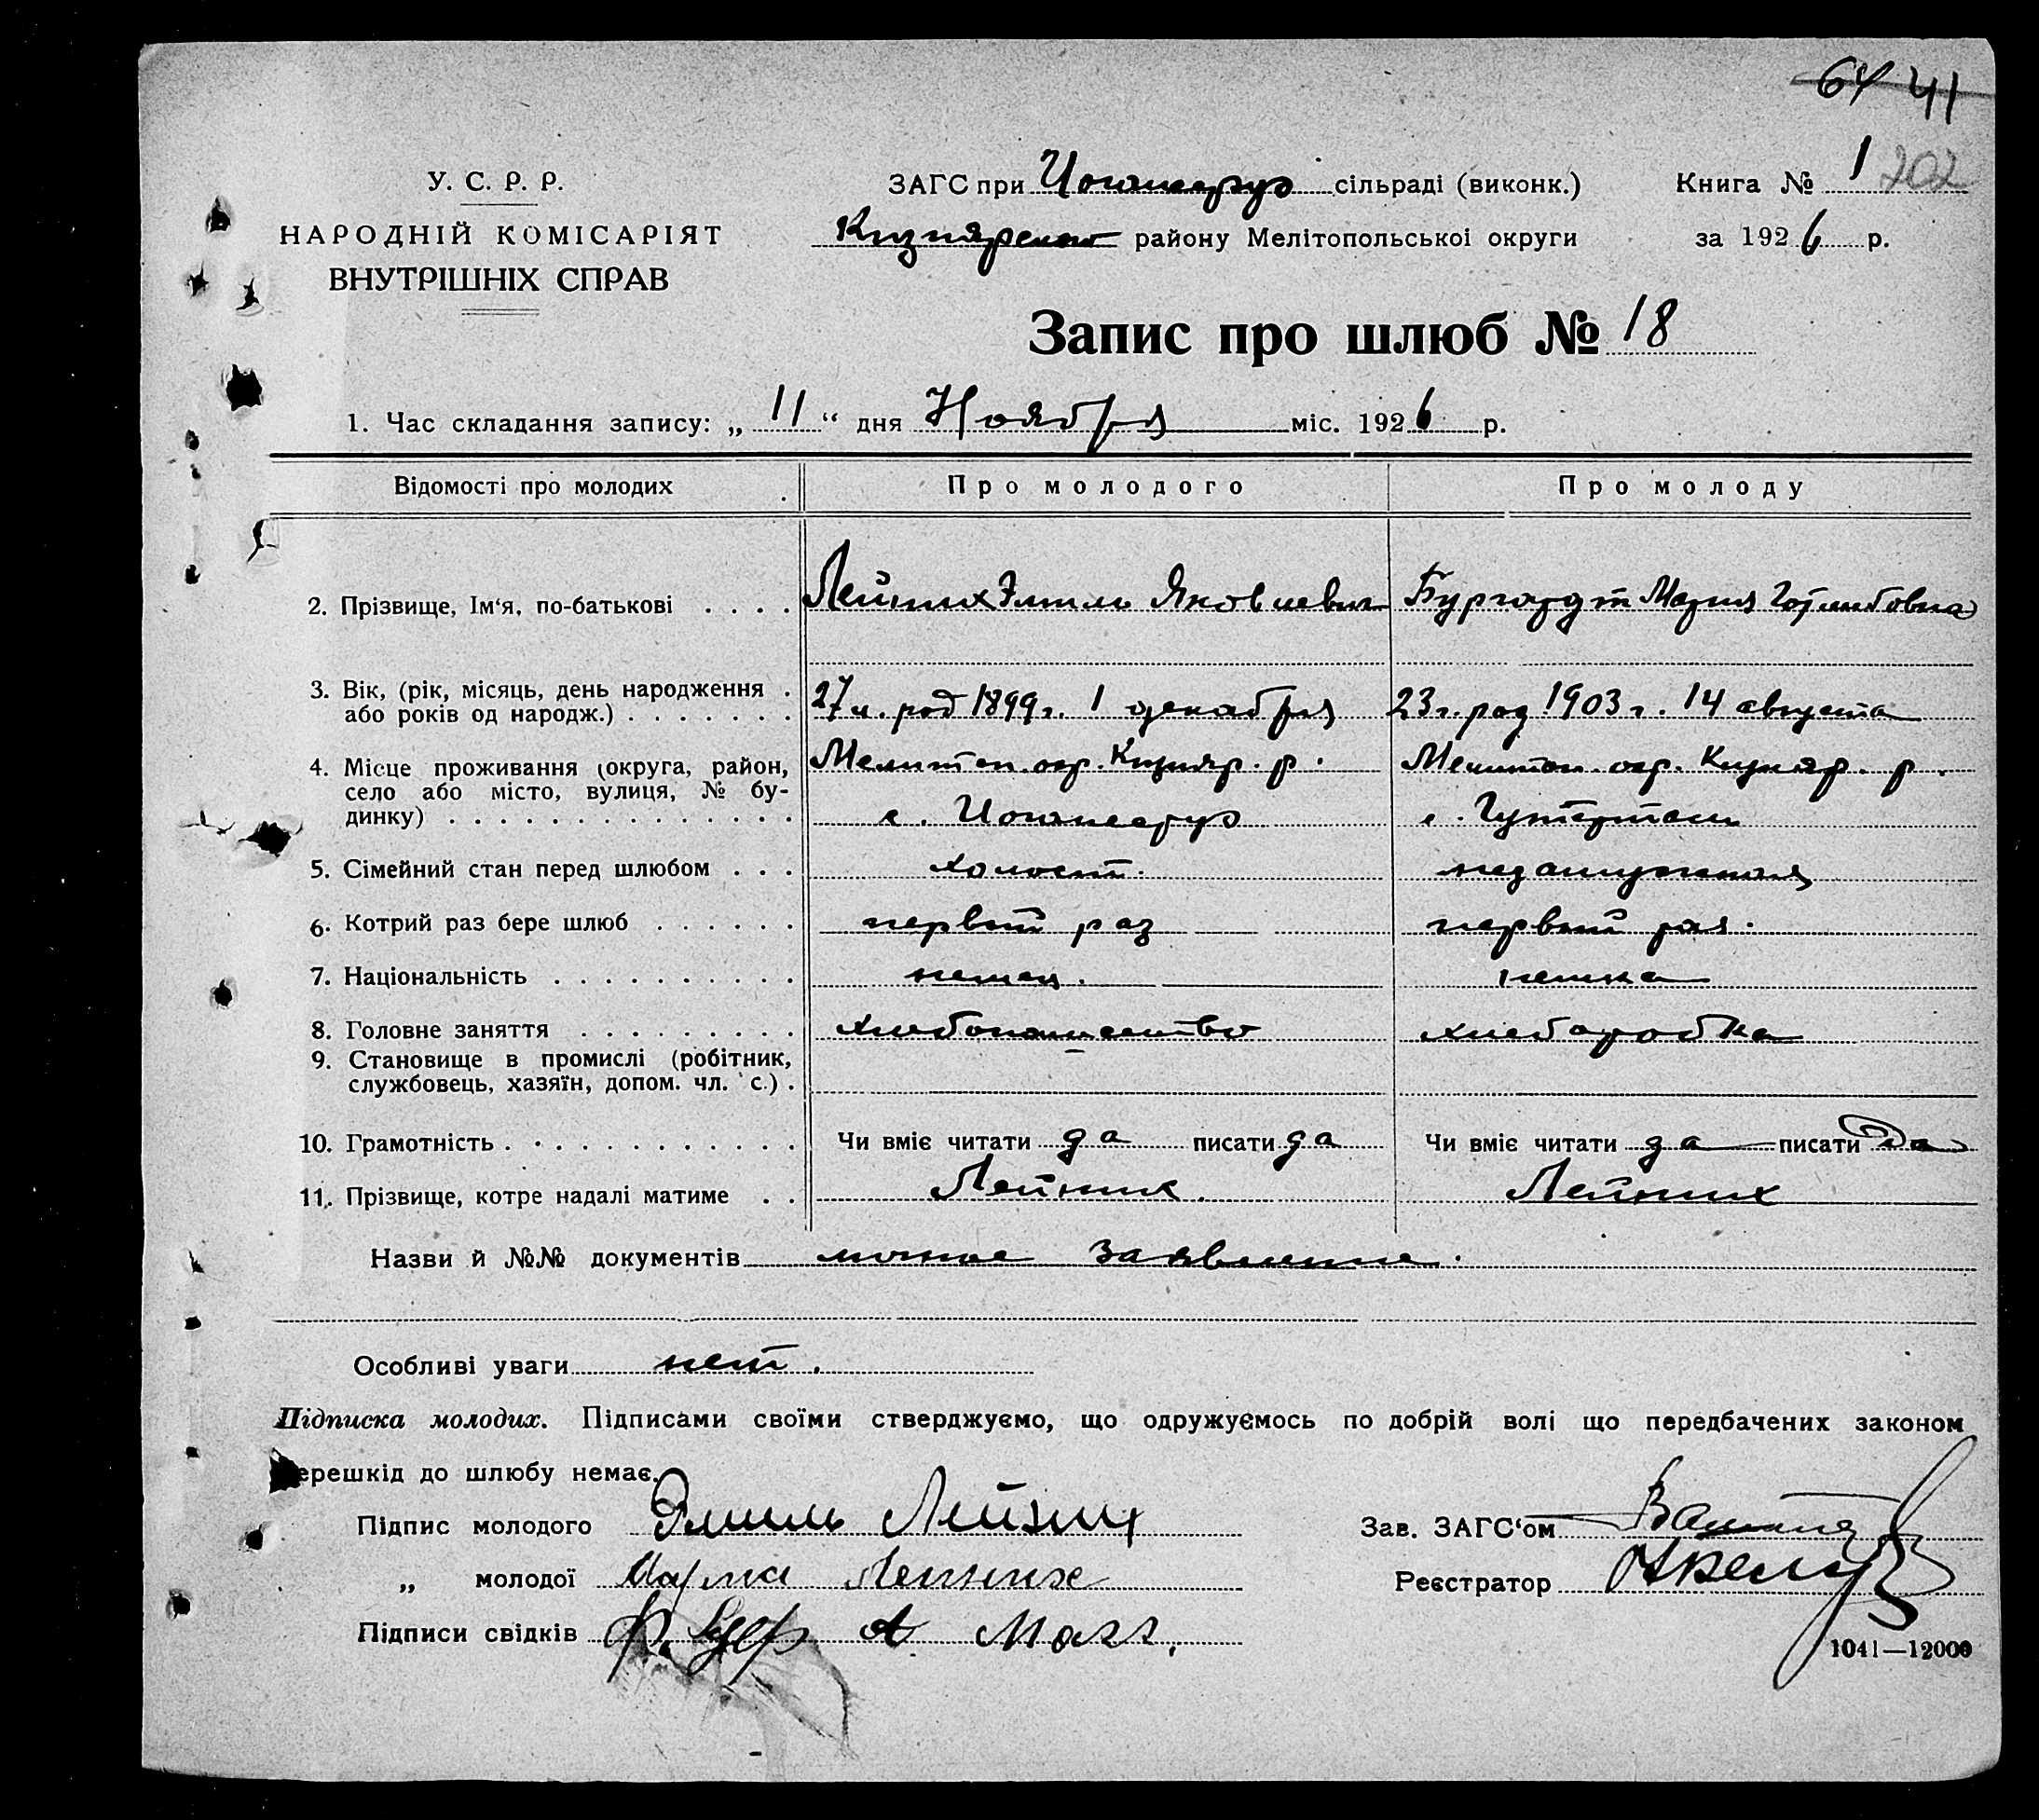 64 41
У. С. Р. Р.
НАРОДНІЙ КОМІСАРІЯТ
ВНУТРІШНІХ СПРАВ
ЗАГС при Иоганесруэ сільраді (виконк.)
Кизиярском району Мелітопольської округи
Книга № 1 202
за 1926 р.
Запис про шлюб № 18
1. Час складання запису: „ 11 “ дня Ноября міс. 1926 р.
Відомості про молодих
Про молодого
Про молоду
2. Прізвище, Ім‘я, по-батькові . . . . Лейних Эмиль Яковлевич Бургардт Мария Готлибовна
3. Вік, (рік, місяць, день народження . 27 л. род 1899 г. 1 декабря 23 г. род 1903 г. 14 августа
або років од народж.) . . . . . . .
4. Місце проживання (округа, район, Мелитоп. окр. Кизияр. р. Мелитоп. окр. Кизияр. р.
село або місто, вулиця, № бу-
динку) . . . . . . . . . . . . . . с. Иоганесруэ с. Гутерталь
5. Сімейний стан перед шлюбом . . . холост. незамужняя
6. Котрий раз бере шлюб . . . . . . первый раз первый раз.
7. Національність . . . . . . . . . . немец. немка
8. Головне заняття . . . . . . . . . хлебопашество хлеборобка
9. Становище в промислі (робітник,
службовець, хазяїн, допом. чл. с.) .
10. Грамотність . . . . . . . . . . . . Чи вміє читати да писати да Чи вміє читати да писати да
11. Прізвище, котре надалі матиме . . Лейник. Лейних
Назви й №№ документів личное заявление.
Особливі уваги нет.
Підписка молодих. Підписами своїми стверджуємо, що одружуємось по добрій волі що передбачених законом
ерешкід до шлюбу немає.
Підпис молодого Эмиль Лейних
Зав. ЗАГС‘ом
„ молодої Мария Лейних
Реєстратор
Підписи свідків
1041—12000